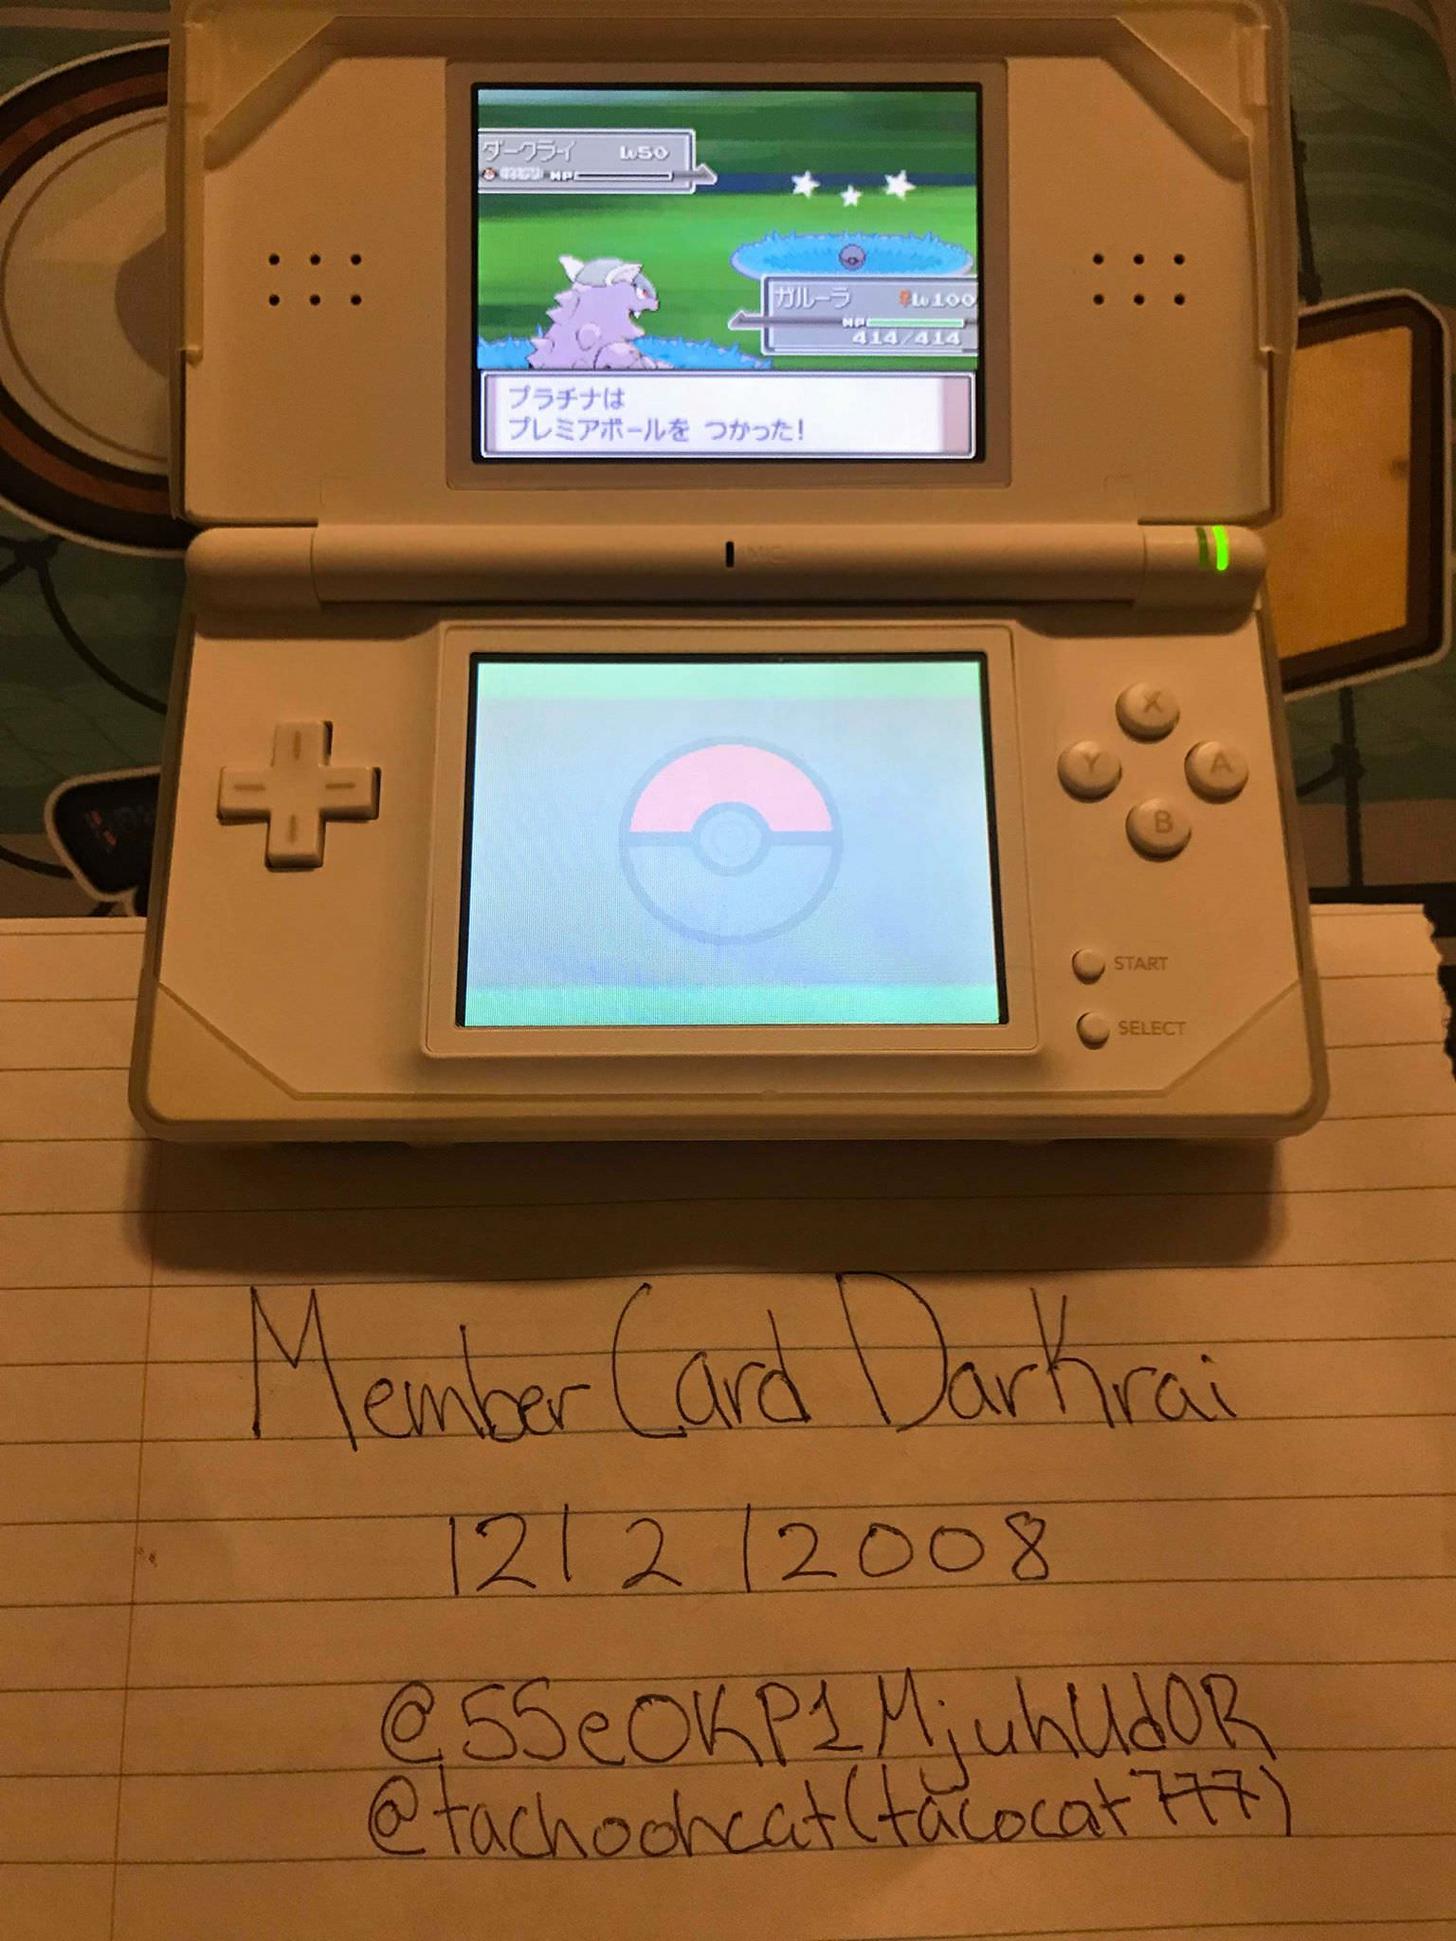 ダークライ Lv50
HP
ガルーラ ♀Lv100
HP
414/414
プラチナは
プレミアボールを つかった!
MIC
X
Y A
B
START
SELECT
Member Card Darkrai
12/2/2008
@5SeOKP1MjuhUdOR
@tachoohcat(tacocat777)